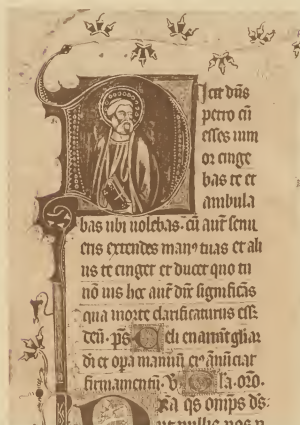 Dicit dn̄s
petro cū
esses iuni
or cinge
bas te et
ambula
bas ubi uolebas. cū aūt senu
eris extendes man⁹ tuas et ali
us te cinget et ducet quo tu
nō uis hoc aūt dix̄ significās
qua morte clarificaturus esset
deū. ps̄ Celi enarrāt gl̄iar̄
dei et opa manuū ei⁹ ānūciat
firmamentū. V̄. Gl̄a. oro.
qs om̄ps ds̄: